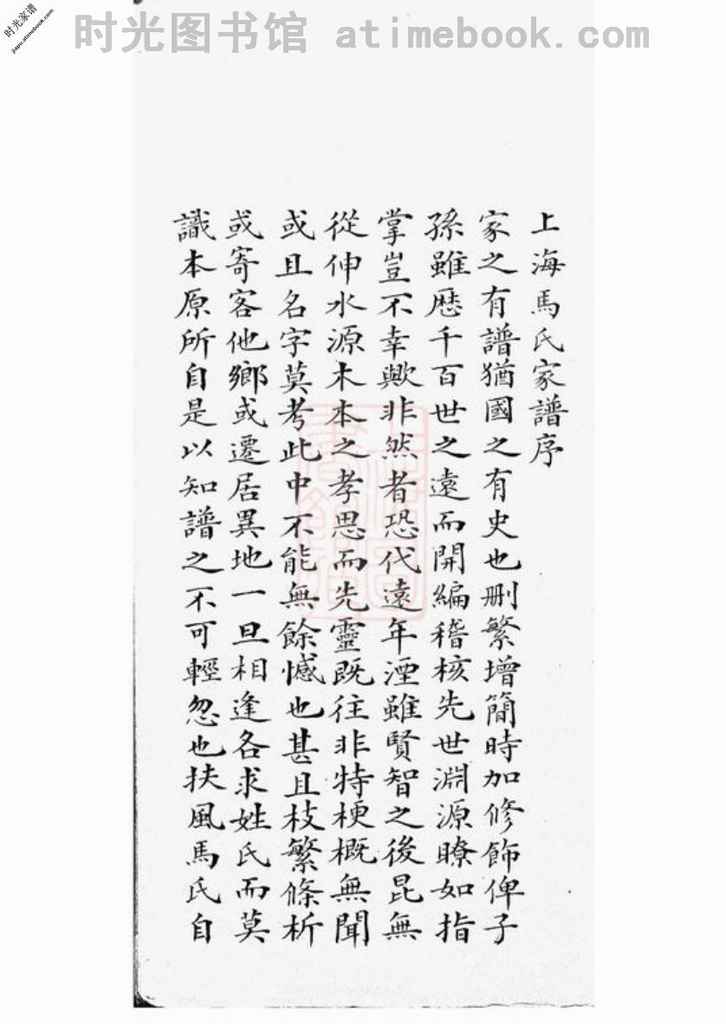 时光家谱
jiapu.atimebook.com
时光图书馆 atimebook.com
上海馬氏家譜序
家之有譜猶國之有史也刪繁增簡時加修飾俾子
孫雖歷千百世之遠而開編稽核先世淵源瞭如指
掌豈不幸歟非然者恐代遠年湮雖賢智之後昆無
從伸水源木本之孝思而先靈既往非特梗概無聞
或且名字莫考此中不能無餘憾也甚且枝繁條析
或寄客他鄉或遷居異地一旦相逢各求姓氏而莫
識本原所自是以知譜之不可輕忽也扶風馬氏自